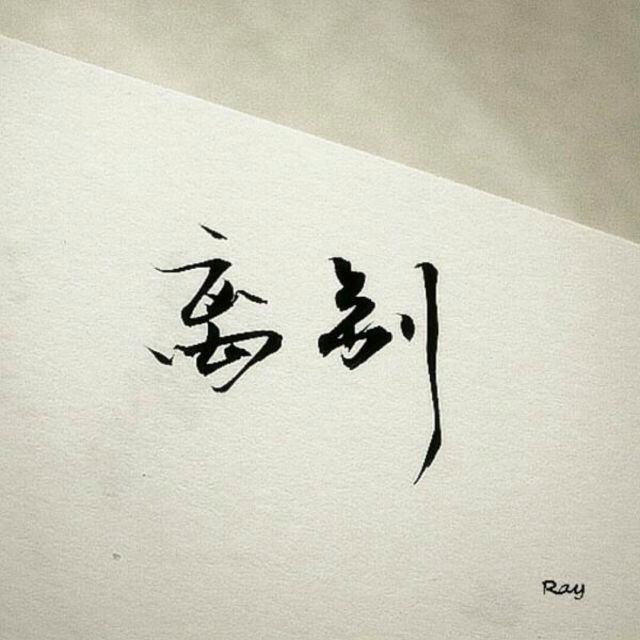 离别
Ray